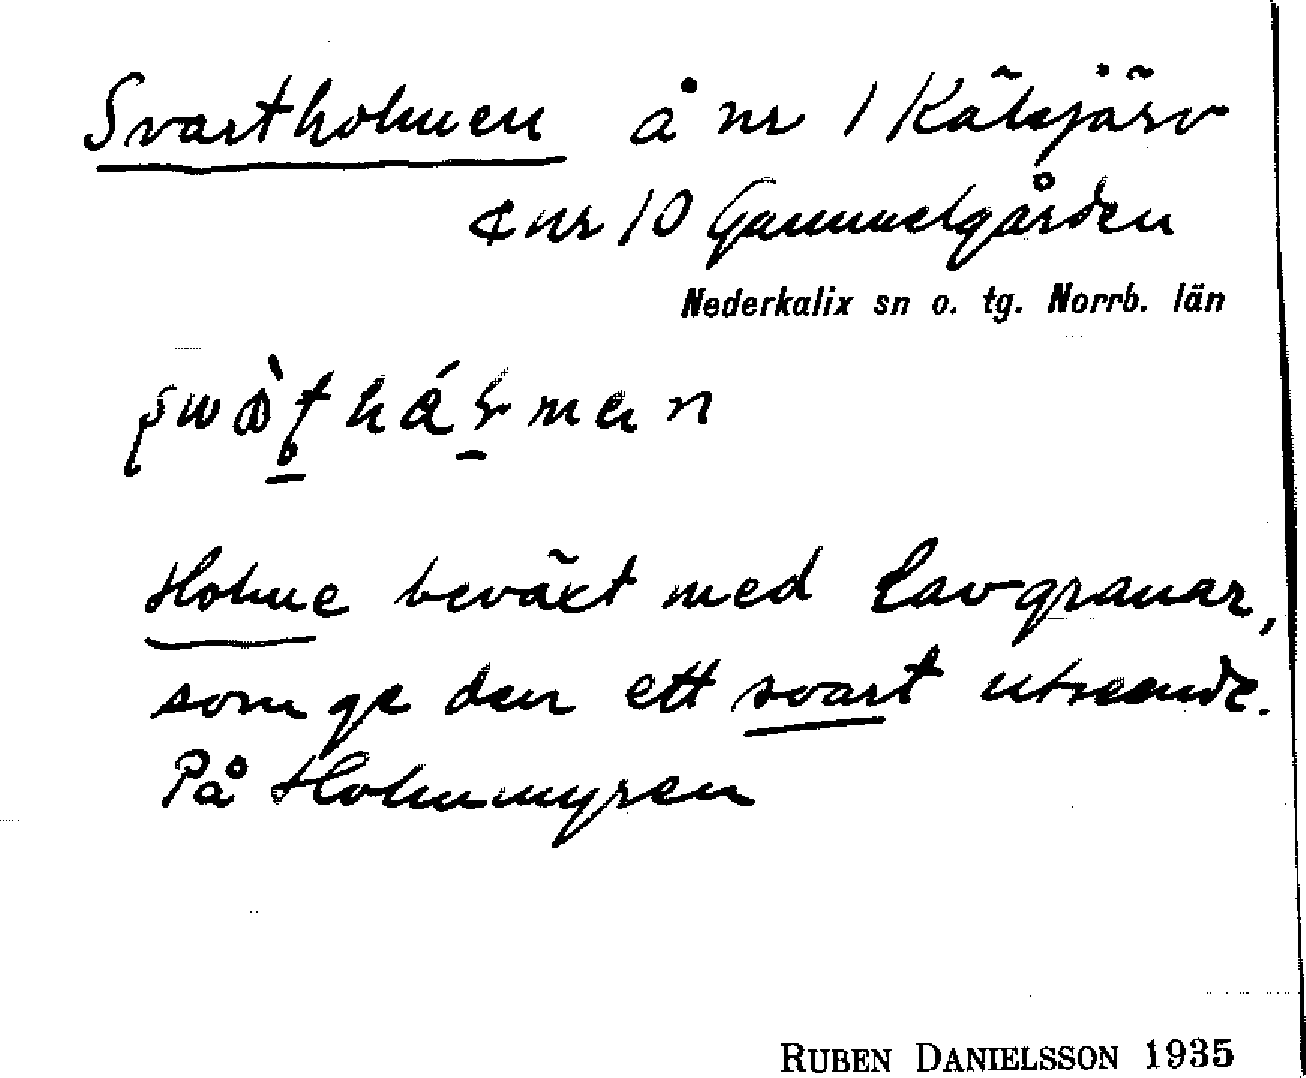 Svartholmen å nr 1 Kälsjärv
¢ nr 10 Gammelgården
Nederkalix sn o. tg. Norrb. län
Holme beväxt med lavgranar,
som ge den ett svart utseende.
På Holmmyren
RUBEN DANIELSSON 1935